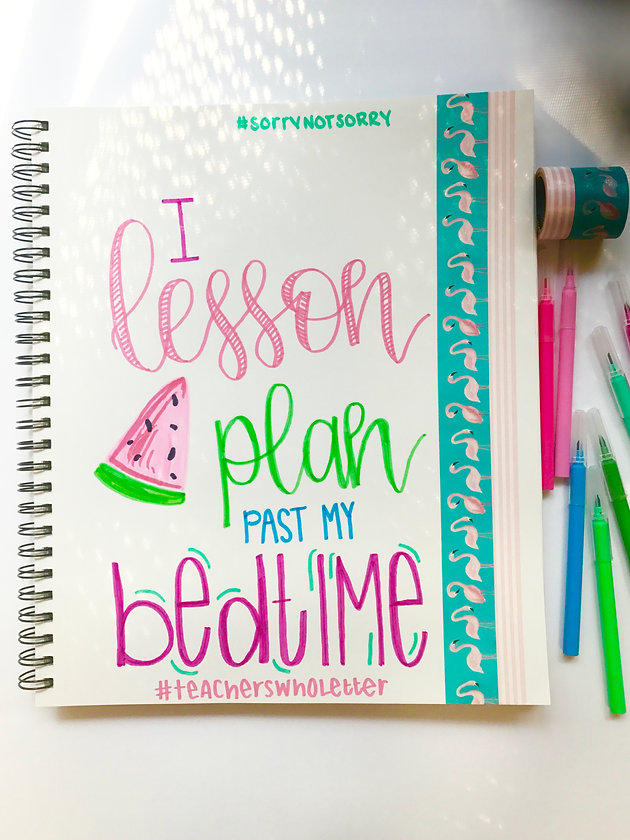 #SORRYNOTSORRY
I
lesson
plan
PAST MY
bedtIMe
#teACHersWHOLetter